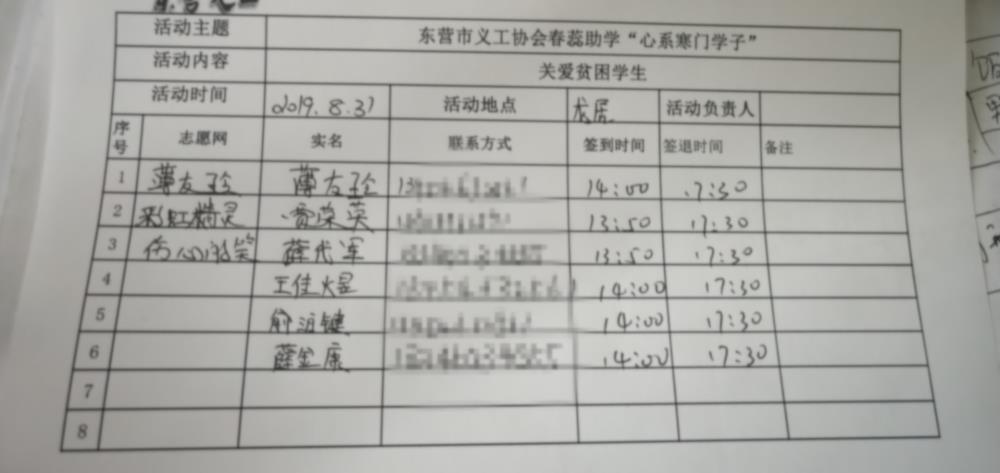 活动主题 东营市义工协会春蕊助学“心系寒门学子”
活动内容 关爱贫困学生
活动时间 2019.8.31 活动地点 龙居 活动负责人
序号 志愿网 实名 联系方式 签到时间 签退时间 备注
1 薄友珍 薄友珍 14:00 17:30
2 彩虹精灵 荣英 13:50 17:30
3 伤心 笑 薛代军 13:50 17:30
4 王佳煜 14:00 17:30
5 俞 键 14:00 17:30
6 薛金康 14:00 17:30
7
8